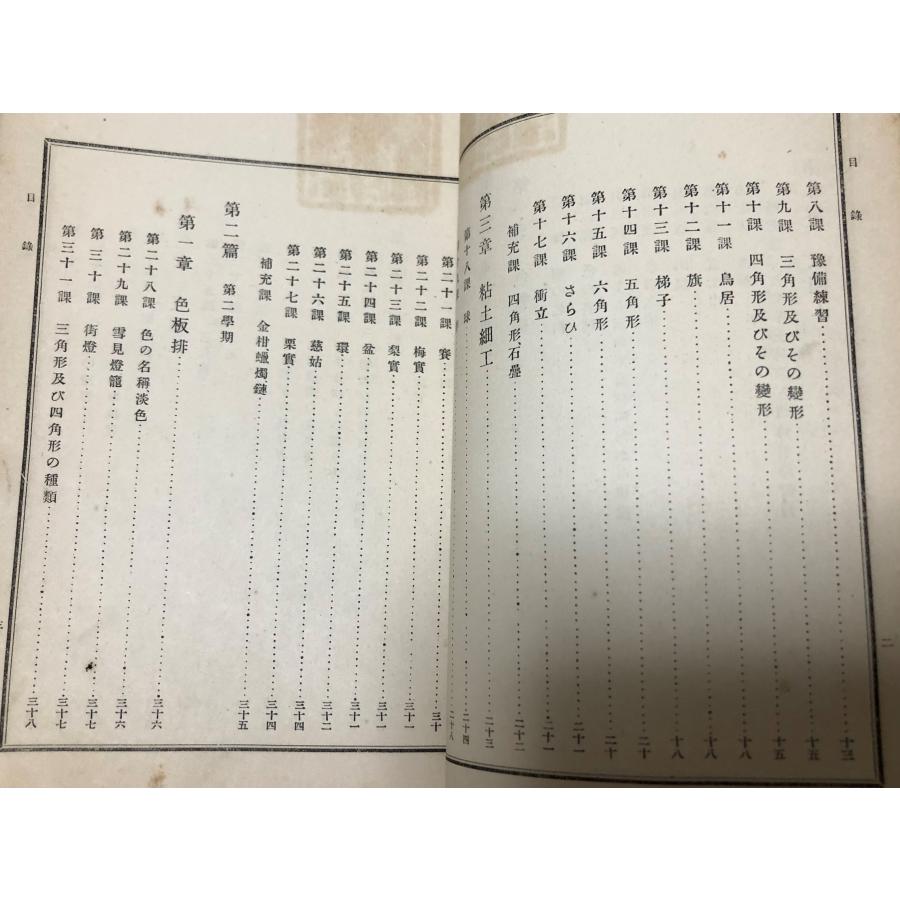 目錄
第八課 豫備練習……十三
第九課 三角形及びその變形……十五
第十課 四角形及びその變形……十五
第十一課 鳥居……十八
第十二課 旗……十八
第十三課 梯子……十八
第十四課 五角形……二十
第十五課 六角形……二十
第十六課 さらひ……二十一
第十七課 衝立……二十一
補充課 四角形、石疊……二十二
第三章 粘土細工……二十三
第十八課 球……二十四
二十八
二
第二十一課 賽……三十
第二十二課 梅實……三十一
第二十三課 梨實……三十一
第二十四課 盆……三十一
第二十五課 環……三十一
第二十六課 慈姑……三十二
第二十七課 栗實……三十四
補充課 金柑、蠟燭、鏈……三十四
第二篇 第二學期……三十五
第一章 色板排……三十六
第二十八課 色の名稱淡色……三十六
第二十九課 雪見燈籠……三十六
第三十課 街燈……三十七
第三十一課 三角形及び四角形の種類……三十八
目錄